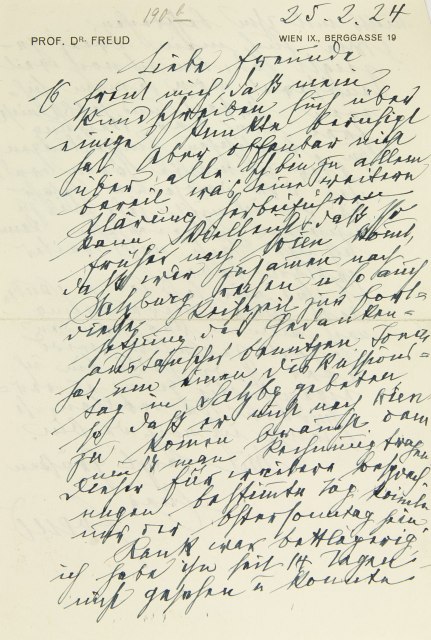 190 b
25.2.24
PROF. DR. FREUD
WIEN IX., BERGGASSE 19
Liebe Freunde
Es freut mich daß mein
Rundschreiben Sie über
einige Punkte beruhigt
hat aber offenbar nicht
über alle. Ich bin zu allem
bereit was eine weitere
Klärung herbeiführen
kann. Vielleicht daß Sie
früher nach Wien komt,
daß wir zusamen nach
Salzburg reisen u so auch
diese Reisezeit zur Fort-
setzung des Gedanken-
austausches benützen. Jones
hat um einen Diskussions-
tag in Salzbg gebeten
so daß er nicht nach Wien
zu komen braucht. Dem
muß man Rechnung tragen
Dieser für weitere Besprech
ungen bestimte Tag könnte
nur der Ostersonntag sein
Rank war bettlägerig
ich habe ihn seit 14 Tagen
nicht gesehen u konnte